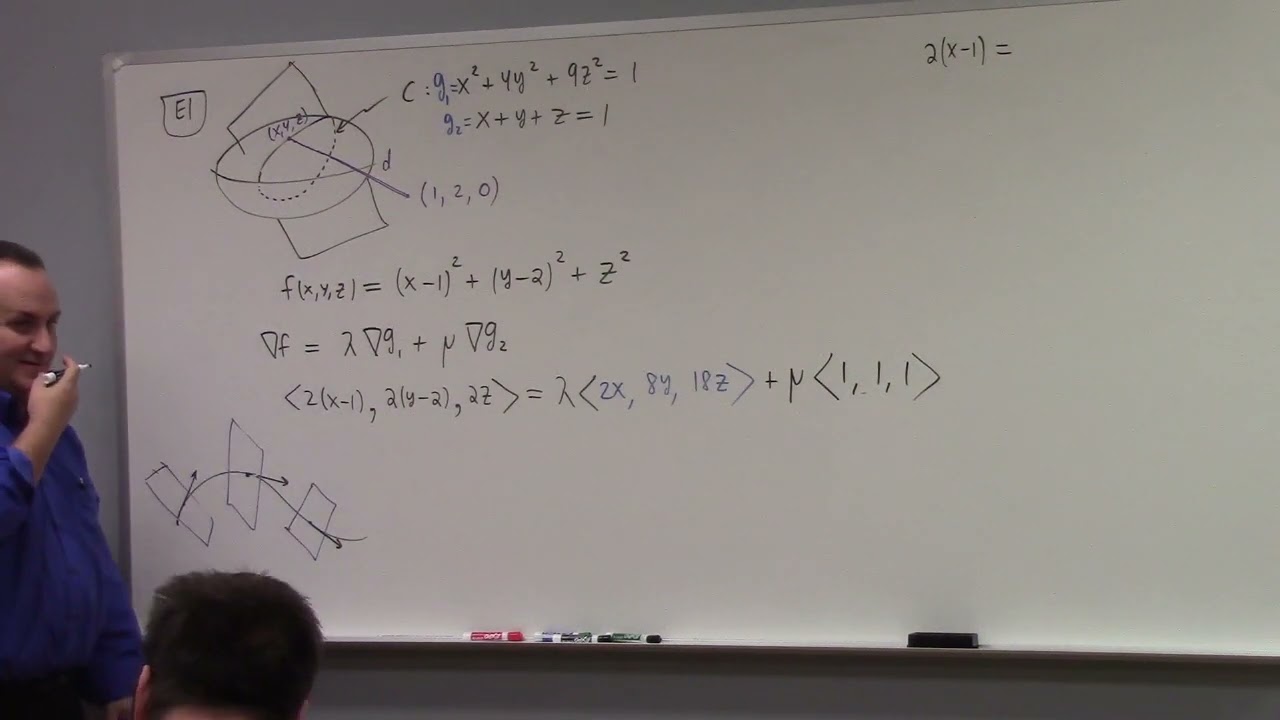 E1
C : g₁ = x² + 4y² + 9z² = 1
g₂ = x + y + z = 1
(x,y,z)
d
(1, 2, 0)
f(x,y,z) = (x−1)² + (y−2)² + z²
∇f = λ∇g₁ + μ∇g₂
⟨2(x−1), 2(y−2), 2z⟩ = λ⟨2x, 8y, 18z⟩ + μ⟨1, 1, 1⟩
2(x−1) =